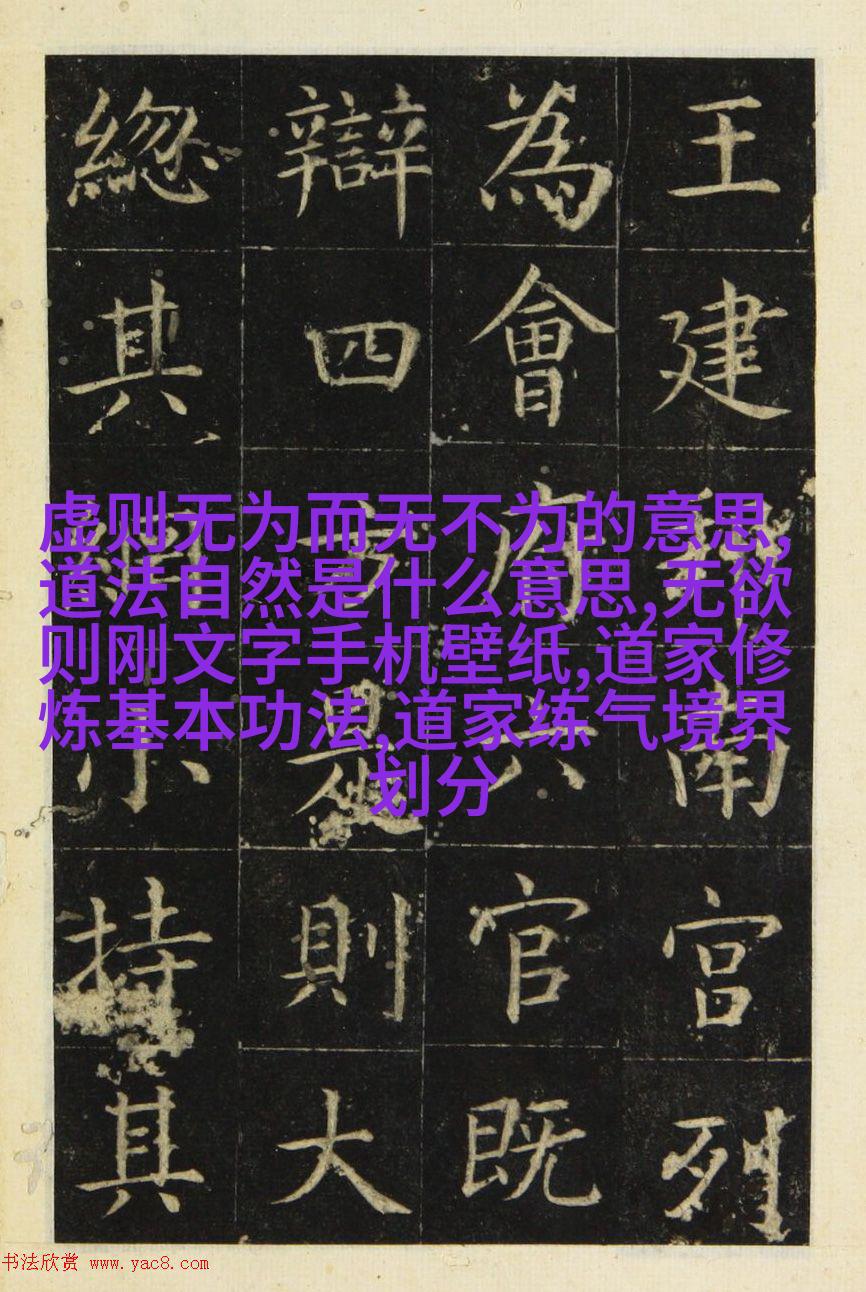 王建南宮列
為會府六官既
辯四方是則大
緫其綱小持其
虚则无为而无不为的意思,
道法自然是什么意思,无欲
则刚文字手机壁纸,道家修
炼基本功法,道家练气境界
划分
书法欣赏 www.yac8.com